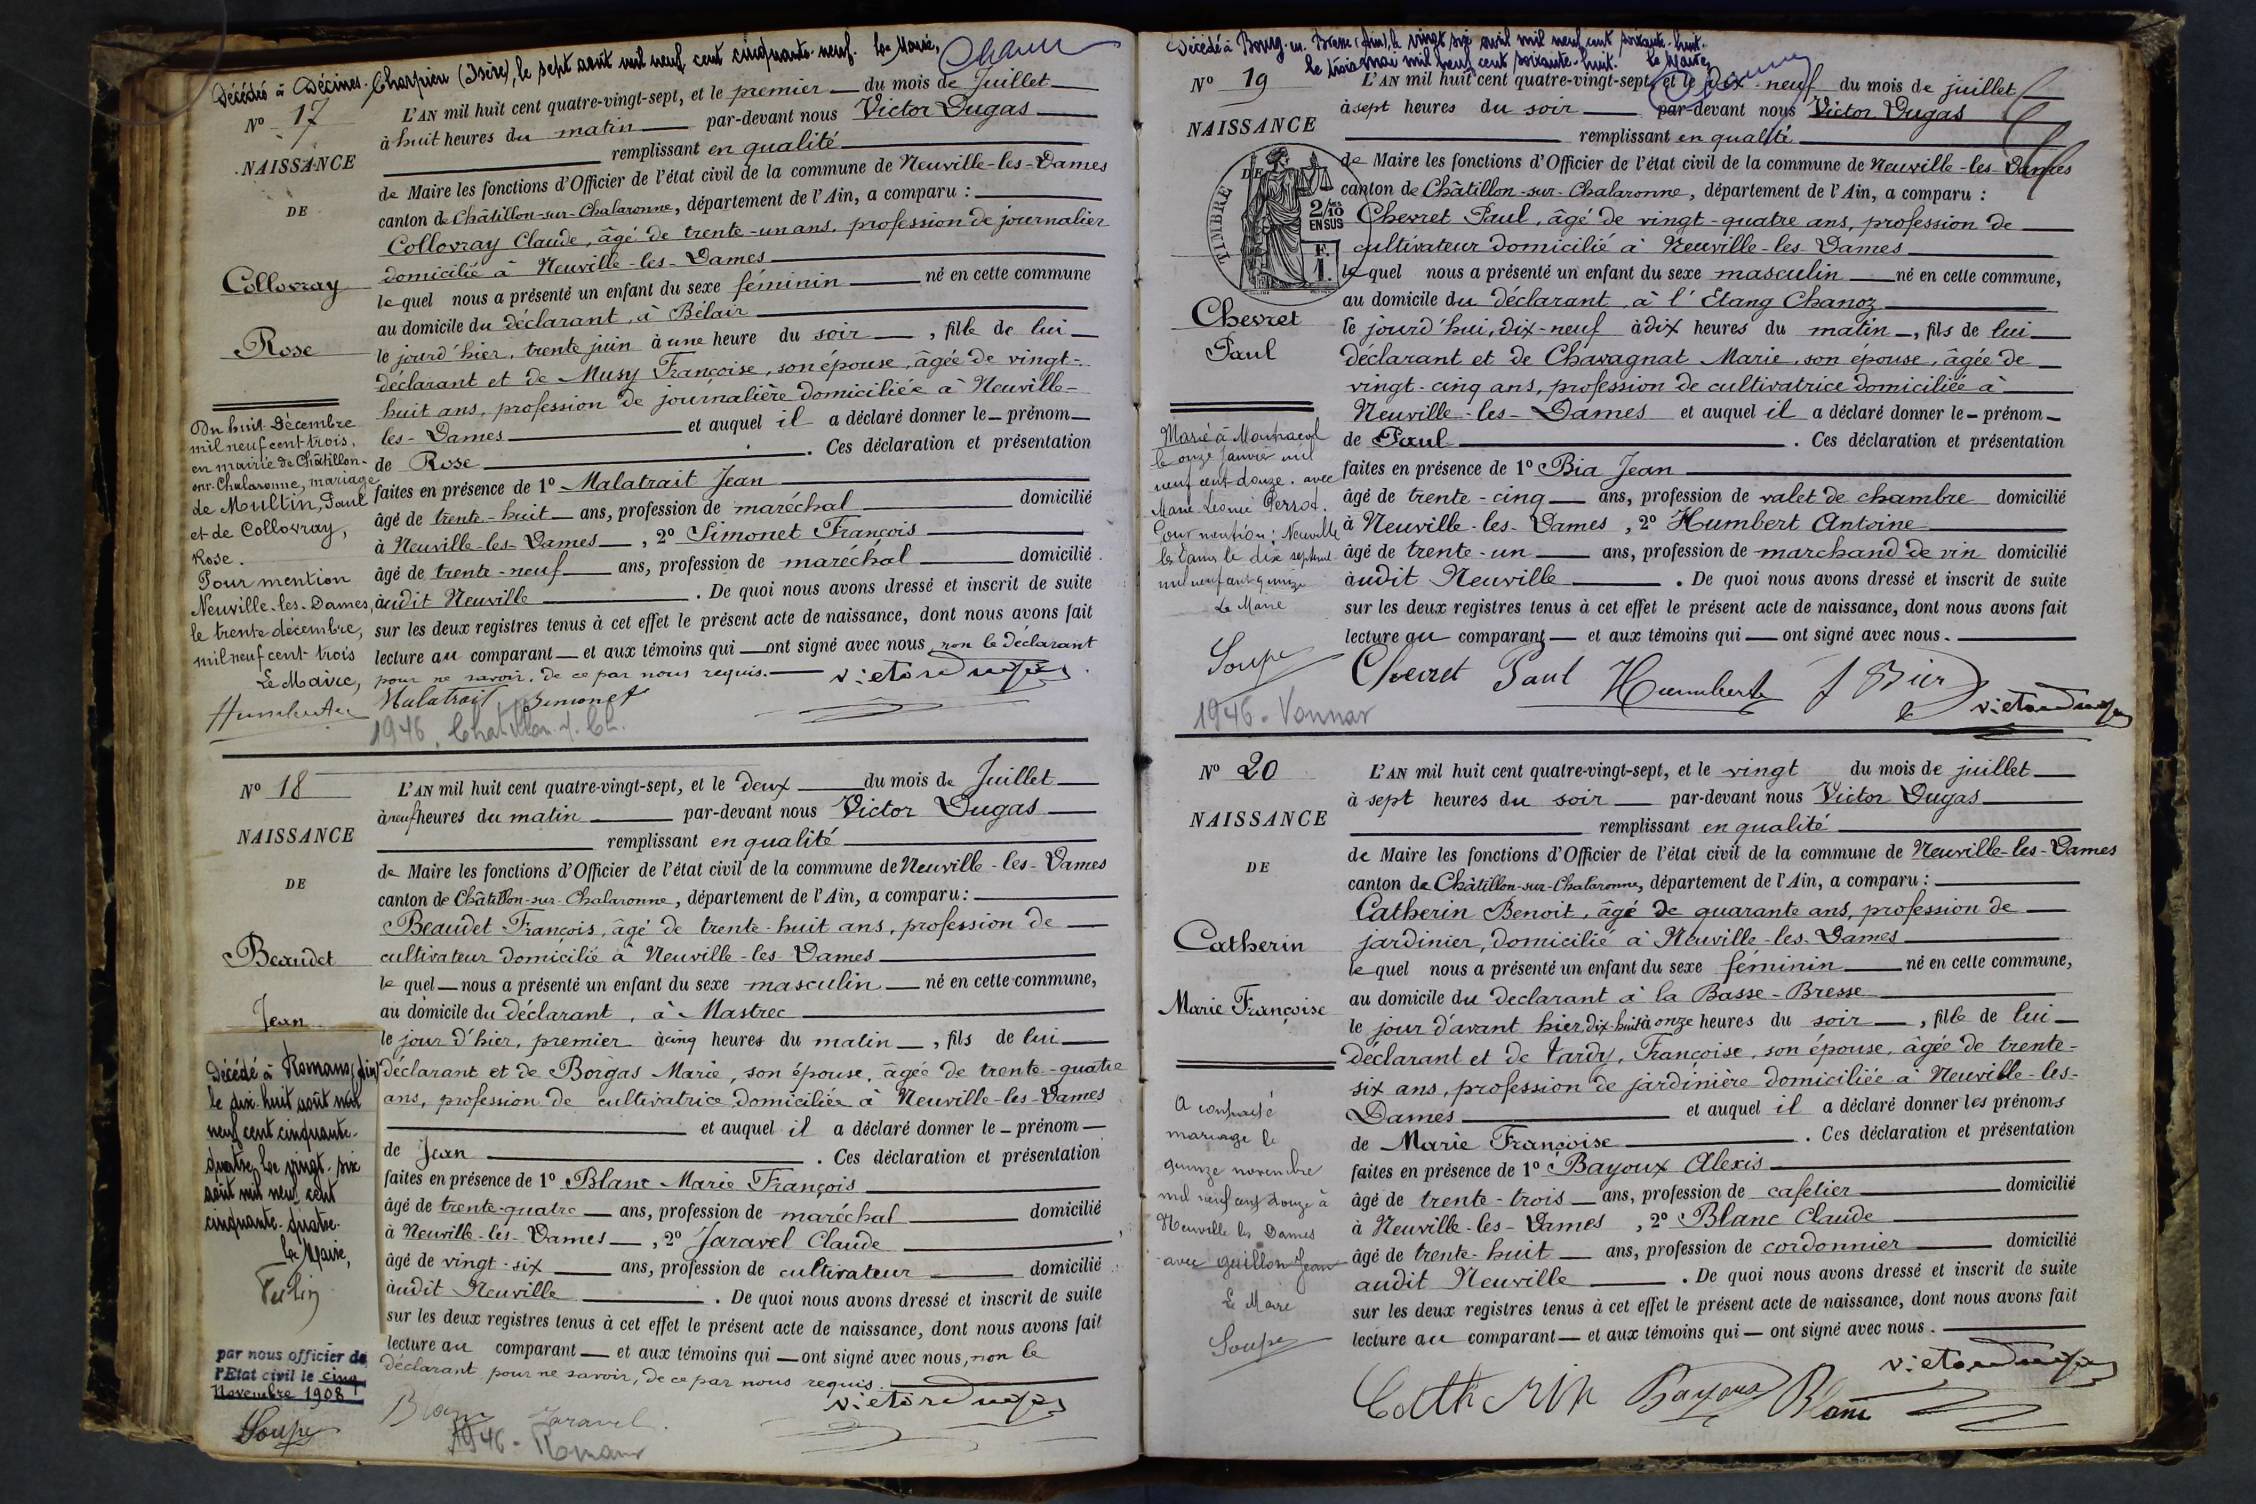 Décédée à Décines-Charpieu (Isère), le sept août mil neuf cent cinquante-neuf. Le Maire,
N° 17
NAISSANCE
DE
Collovray
Rose
L'AN mil huit cent quatre-vingt-sept, et le premier du mois de Juillet
à huit heures du matin par-devant nous Victor Dugas
remplissant en qualité
de Maire les fonctions d'Officier de l'état civil de la commune de Neuville-les-Dames
canton de Châtillon-sur-Chalaronne, département de l'Ain, a comparu :
Collovray Claude, âgé de trente-un ans, profession de journalier
domicilié à Neuville-les-Dames
lequel nous a présenté un enfant du sexe féminin né en cette commune
au domicile du déclarant, à Bélair
le jourd'hier, trente juin à une heure du soir, fille de lui
déclarant et de Musy Françoise, son épouse, âgée de vingt-
huit ans, profession de journalière domiciliée à Neuville-
les-Dames et auquel il a déclaré donner le prénom
de Rose. Ces déclaration et présentation
faites en présence de 1° Malatrait Jean
âgé de trente-huit ans, profession de maréchal domicilié
à Neuville-les-Dames, 2° Simonet François
âgé de trente-neuf ans, profession de maréchal domicilié
audit Neuville. De quoi nous avons dressé et inscrit de suite
sur les deux registres tenus à cet effet le présent acte de naissance, dont nous avons fait
lecture au comparant et aux témoins qui ont signé avec nous, non le déclarant
pour ne savoir, de ce par nous requis.
Malatrait Simonet Victor Dugas
1946. Chatillon s. Ch.
Du huit Décembre
mil neuf cent trois,
en mairie de Châtillon-
sur-Chalaronne, mariage
de Multin, Paul
et de Collovray,
Rose.
Pour mention
Neuville-les-Dames,
le trente décembre,
mil neuf cent trois
Le Maire,
N° 18
NAISSANCE
DE
Beaudet
Jean
L'AN mil huit cent quatre-vingt-sept, et le deux du mois de Juillet
à neuf heures du matin par-devant nous Victor Dugas
remplissant en qualité
de Maire les fonctions d'Officier de l'état civil de la commune de Neuville-les-Dames
canton de Châtillon-sur-Chalaronne, département de l'Ain, a comparu :
Beaudet François, âgé de trente-huit ans, profession de
cultivateur domicilié à Neuville-les-Dames
lequel nous a présenté un enfant du sexe masculin né en cette commune,
au domicile du déclarant, à Mastrec
le jour d'hier, premier à cinq heures du matin, fils de lui
déclarant et de Borgas Marie, son épouse, âgée de trente-quatre
ans, profession de cultivatrice domiciliée à Neuville-les-Dames
et auquel il a déclaré donner le prénom
de Jean. Ces déclaration et présentation
faites en présence de 1° Blanc Marie François
âgé de trente-quatre ans, profession de maréchal domicilié
à Neuville-les-Dames, 2° Jaravel Claude
âgé de vingt-six ans, profession de cultivateur domicilié
audit Neuville. De quoi nous avons dressé et inscrit de suite
sur les deux registres tenus à cet effet le présent acte de naissance, dont nous avons fait
lecture au comparant et aux témoins qui ont signé avec nous, non le
déclarant pour ne savoir, de ce par nous requis.
Blanc Jaravel Victor Dugas
1946 - Romans
Décédé à Romans (Ain)
le dix-huit août mil
neuf cent cinquante-
quatre. Le vingt-six
août mil neuf cent
cinquante-quatre.
Le Maire,
par nous officier de
l'Etat civil le cinq
Novembre 1908
Soupe
Décédé à Bourg-en-Bresse (Ain), le vingt six avril mil neuf cent soixante-huit.
Le trois mai mil neuf cent soixante-huit. Le Maire,
N° 19
NAISSANCE
TIMBRE
DE
2/10
EN SUS
F.
1.
Chevret
Paul
L'AN mil huit cent quatre-vingt-sept, et le dix-neuf du mois de juillet
à sept heures du soir par-devant nous Victor Dugas
remplissant en qualité
de Maire les fonctions d'Officier de l'état civil de la commune de Neuville-les-Dames
canton de Châtillon-sur-Chalaronne, département de l'Ain, a comparu :
Chevret Paul, âgé de vingt-quatre ans, profession de
cultivateur domicilié à Neuville-les-Dames
lequel nous a présenté un enfant du sexe masculin né en cette commune,
au domicile du déclarant, à l'Etang Chanoz
le jourd'hui, dix-neuf à dix heures du matin, fils de lui
déclarant et de Chavagnat Marie, son épouse, âgée de
vingt-cinq ans, profession de cultivatrice domiciliée à
Neuville-les-Dames et auquel il a déclaré donner le prénom
de Paul. Ces déclaration et présentation
faites en présence de 1° Bia Jean
âgé de trente-cinq ans, profession de valet de chambre domicilié
à Neuville-les-Dames, 2° Humbert Antoine
âgé de trente-un ans, profession de marchand de vin domicilié
audit Neuville. De quoi nous avons dressé et inscrit de suite
sur les deux registres tenus à cet effet le présent acte de naissance, dont nous avons fait
lecture au comparant et aux témoins qui ont signé avec nous.
Chevret Paul Humbert Victor Dugas
1946 - Vonnas
Marié à Montracol
le onze janvier mil
neuf cent douze, avec
Marie Léonie Perrot.
Pour mention : Neuville
les Dames le dix septembre
mil neuf cent quinze
Le Maire
Soupe
N° 20
NAISSANCE
DE
Catherin
Marie Françoise
L'AN mil huit cent quatre-vingt-sept, et le vingt du mois de juillet
à sept heures du soir par-devant nous Victor Dugas
remplissant en qualité
de Maire les fonctions d'Officier de l'état civil de la commune de Neuville-les-Dames
canton de Châtillon-sur-Chalaronne, département de l'Ain, a comparu :
Catherin Benoit, âgé de quarante ans, profession de
jardinier, domicilié à Neuville-les-Dames
lequel nous a présenté un enfant du sexe féminin né en cette commune,
au domicile du déclarant à la Basse-Bresse
le jour d'avant hier dix-huit à onze heures du soir, fille de lui
déclarant et de Tardy, Françoise, son épouse, âgée de trente-
six ans, profession de jardinière domiciliée à Neuville-les-
Dames et auquel il a déclaré donner les prénoms
de Marie Françoise. Ces déclaration et présentation
faites en présence de 1° Bayoux Alexis
âgé de trente-trois ans, profession de cafetier domicilié
à Neuville-les-Dames, 2° Blanc Claude
âgé de trente-huit ans, profession de cordonnier domicilié
audit Neuville. De quoi nous avons dressé et inscrit de suite
sur les deux registres tenus à cet effet le présent acte de naissance, dont nous avons fait
lecture au comparant et aux témoins qui ont signé avec nous.
Catherin Bayoux Blanc Victor Dugas
A contracté
mariage le
quinze novembre
mil neuf cent douze à
Neuville les Dames
avec Guillon Jean
Le Maire
Soupe